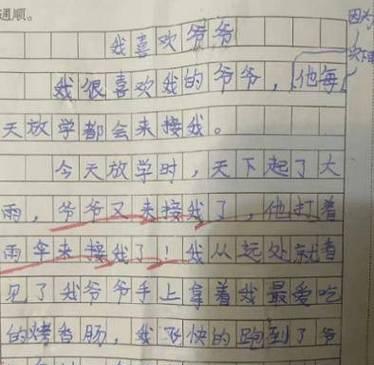 通顺。
我喜欢爷爷
因为
我很喜欢我的爷爷，他每
天放学都会来接我。
今天放学时，天下起了大
雨，爷爷又来接我了，他打着
雨伞来接我了！我从远处就看
见了我爷爷手上拿着我最爱吃
的烤香肠，我飞快的跑到了爷